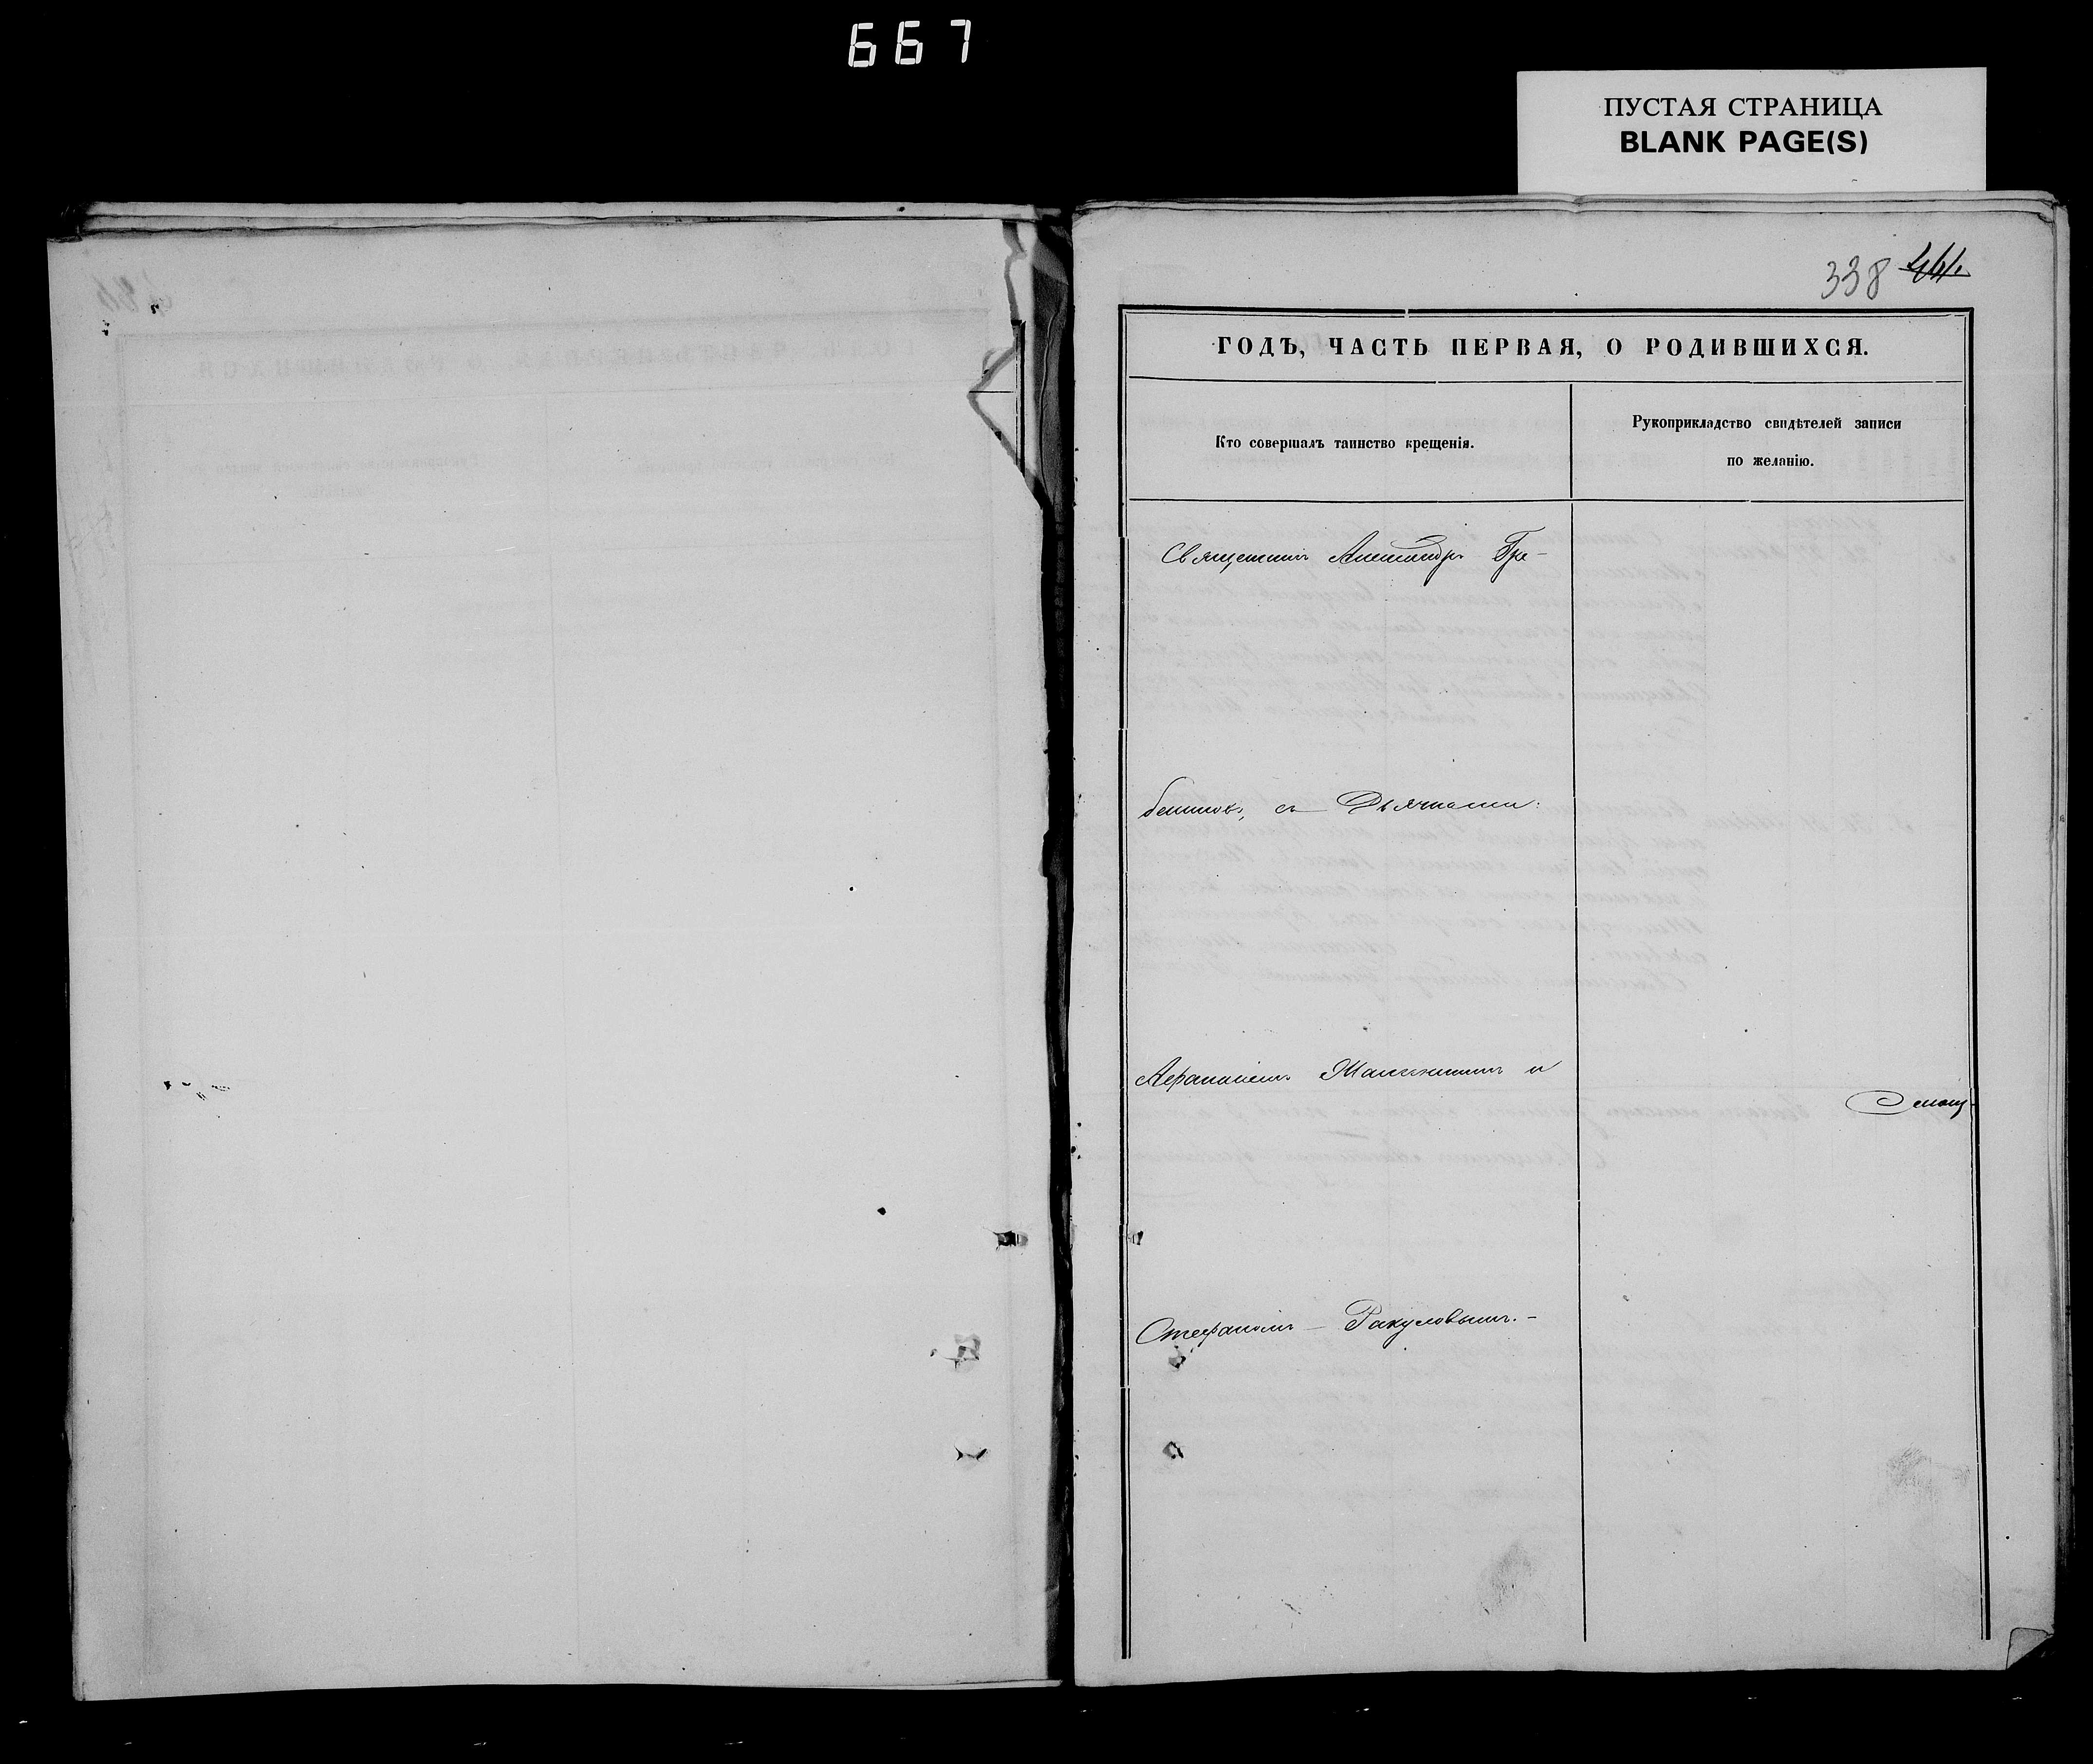 667
ПУСТАЯ СТРАНИЦА
BLANK PAGE(S)
338 461.
ГОДЪ, ЧАСТЬ ПЕРВАЯ, О РОДИВШИХСЯ.
Кто совершалъ таинство крещенія.
Рукоприкладство свидѣтелей записи
по желанію.
Священникъ Александръ Гре-
бенщиковъ, съ Дьячками:
Аѳанасіемъ и
Стефаномъ – Ракуловымъ. –